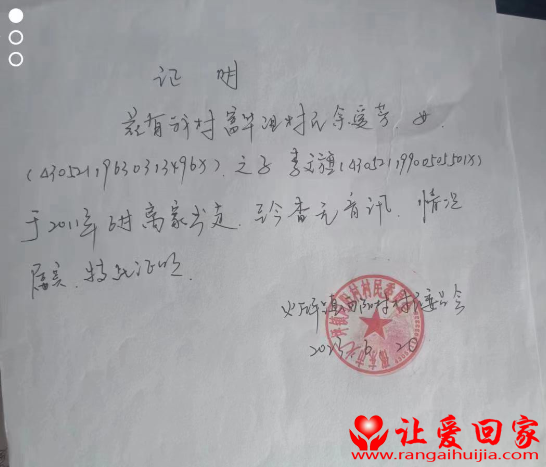 证 明
兹有我村富华组村民余爱芳, 女,
(43052119630313496X), 之子 李文旗(43052119900505501X)
于2011年6月离家出走, 至今杳无音讯. 情况
属实, 特此证明.
村民委员会
2023.6.20
让爱回家
www.rangaihuijia.com